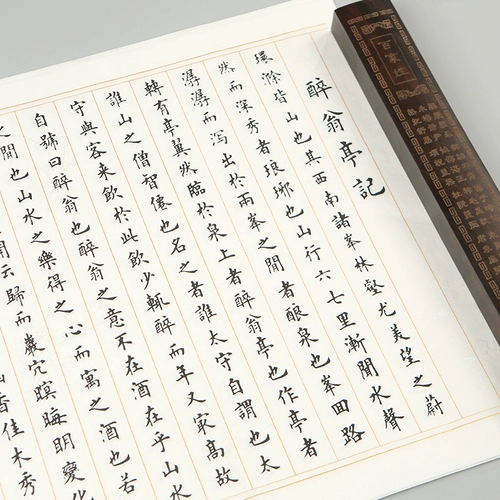 醉翁亭記
環滁皆山也其西南諸峯林壑尤美望之蔚
然而深秀者琅琊也山行六七里漸聞水聲
潺潺而瀉出於兩峯之間者酿泉也峯回路
轉有亭翼然臨於泉上者醉翁亭也作亭者
誰山之僧智僊也名之者誰太守自謂也太
守與客來飲於此飲少輒醉而年又冣高故
自號曰醉翁也醉翁之意不在酒在乎山水
之間也山水之樂得之心而寓之酒也若
開云歸而巖穴暝晦明變化
香佳木秀
百家姓